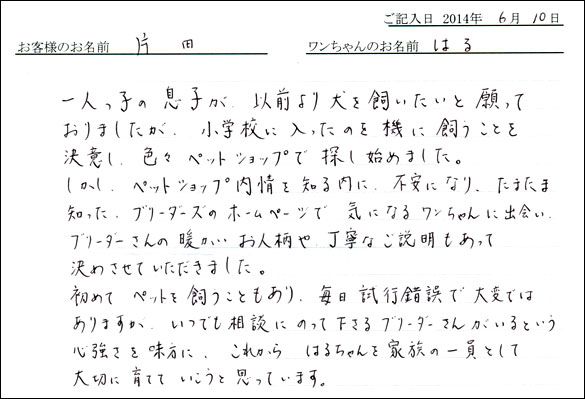 ご記入日 2014年 6月 10日
お客様のお名前 片田 ワンちゃんのお名前 はる
一人っ子の息子が、以前より犬を飼いたいと願って
おりましたが、小学校に入ったのを機に飼うことを
決意し、色々ペットショップで探し始めました。
しかし、ペットショップ内情を知る内に、不安になり、たまたま
知った、ブリーダーズのホームページで気になるワンちゃんに出会い、
ブリーダーさんの暖かいお人柄や、丁寧なご説明もあって
決めさせていただきました。
初めてペットを飼うこともあり、毎日試行錯誤で大変では
ありますが、いつでも相談にのって下さるブリーダーさんがいるという
心強さを味方に、これからはるちゃんを家族の一員として
大切に育てていこうと思っています。